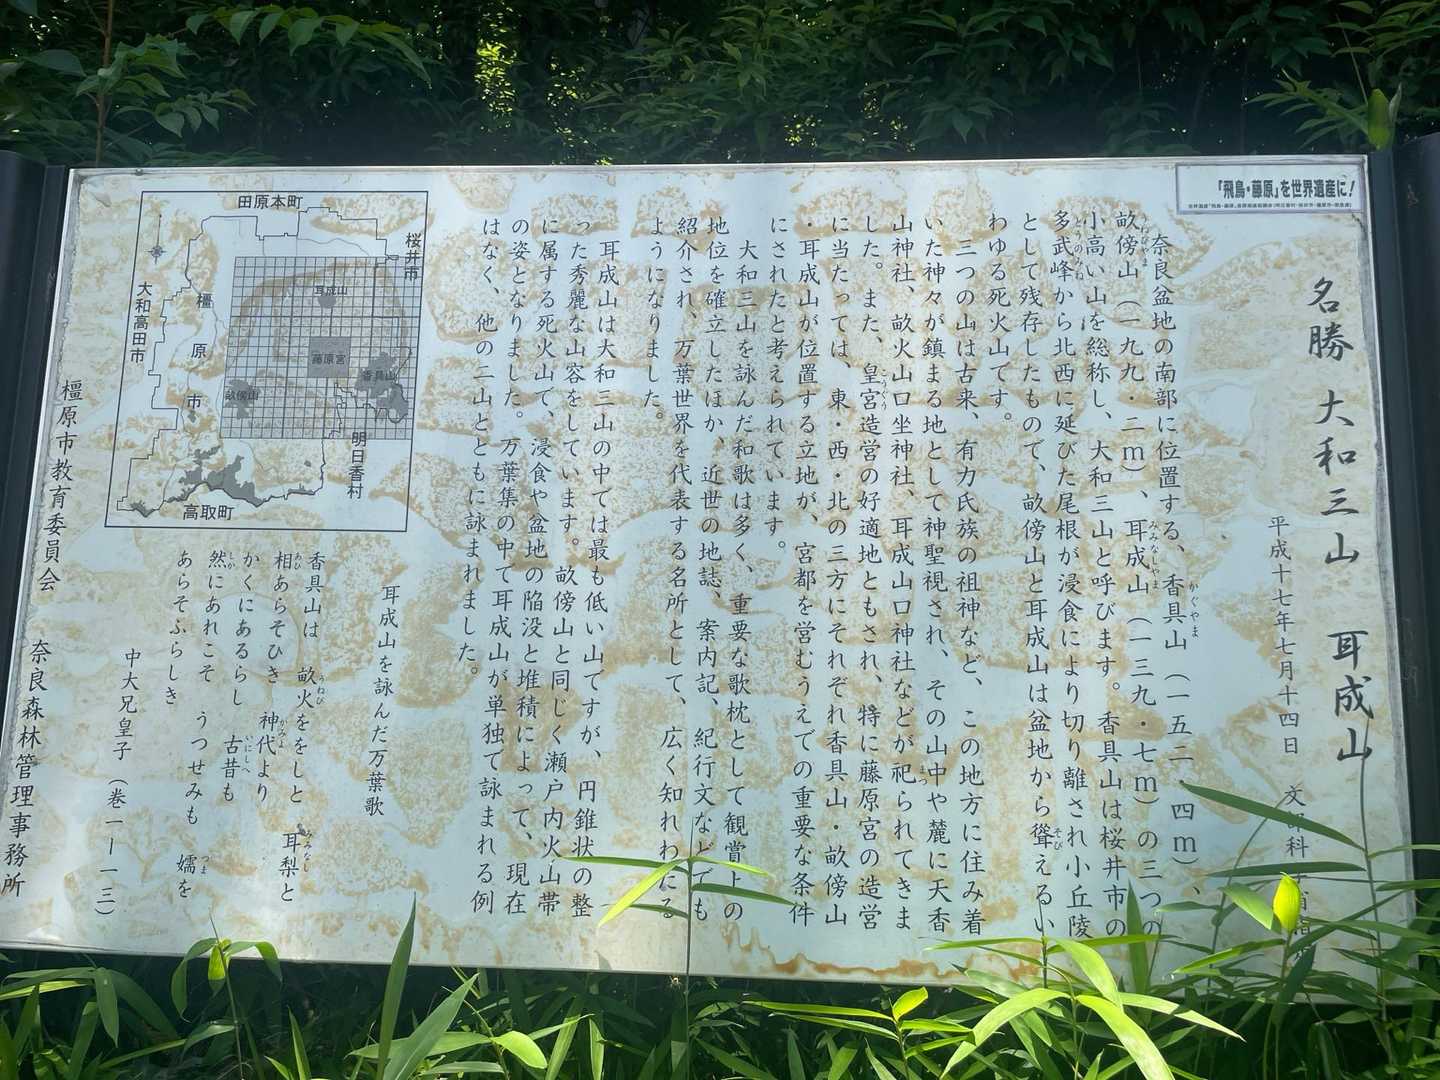 「飛鳥・藤原」を世界遺産に!
名勝 大和三山 耳成山
平成十七年七月十四日 文部科
奈良盆地の南部に位置する、香具山(一五二・四m)、
畝傍山(一九九・二m)、耳成山(一三九・七m)の三つの
小高い山を総称し、大和三山と呼びます。香具山は桜井市の
多武峰から北西に延びた尾根が浸食により切り離され小丘陵
として残存したもので、畝傍山と耳成山は盆地から聳えるい
わゆる死火山です。
三つの山は古来、有力氏族の祖神など、この地方に住み着
いた神々が鎮まる地として神聖視され、その山中や麓に天香
山神社、畝火山口坐神社、耳成山口神社などが祀られてきま
した。また、皇宮造営の好適地ともされ、特に藤原宮の造営
に当たっては、東・西・北の三方にそれぞれ香具山・畝傍山
・耳成山が位置する立地が、宮都を営むうえでの重要な条件
にされたと考えられています。
大和三山を詠んだ和歌は多く、重要な歌枕として観賞上の
地位を確立したほか、近世の地誌、案内記、紀行文などでも
紹介され、万葉世界を代表する名所として、広く知れわたる
ようになりました。
耳成山は大和三山の中では最も低い山ですが、円錐状の整
った秀麗な山容をしています。畝傍山と同じく瀬戸内火山帯
に属する死火山で、浸食や盆地の陥没と堆積によって、現在
の姿となりました。万葉集の中で耳成山が単独で詠まれる例
はなく、他の二山とともに詠まれました。
耳成山を詠んだ万葉歌
香具山は 畝火ををしと 耳梨と
相あらそひき 神代より
かくにあるらし 古昔も
然にあれこそ うつせみも 嬬を
あらそふらしき
中大兄皇子(巻一ー一三)
田原本町
桜井市
大和高田市
橿原市
耳成山
藤原宮
香具山
畝傍山
明日香村
高取町
橿原市教育委員会 奈良森林管理事務所